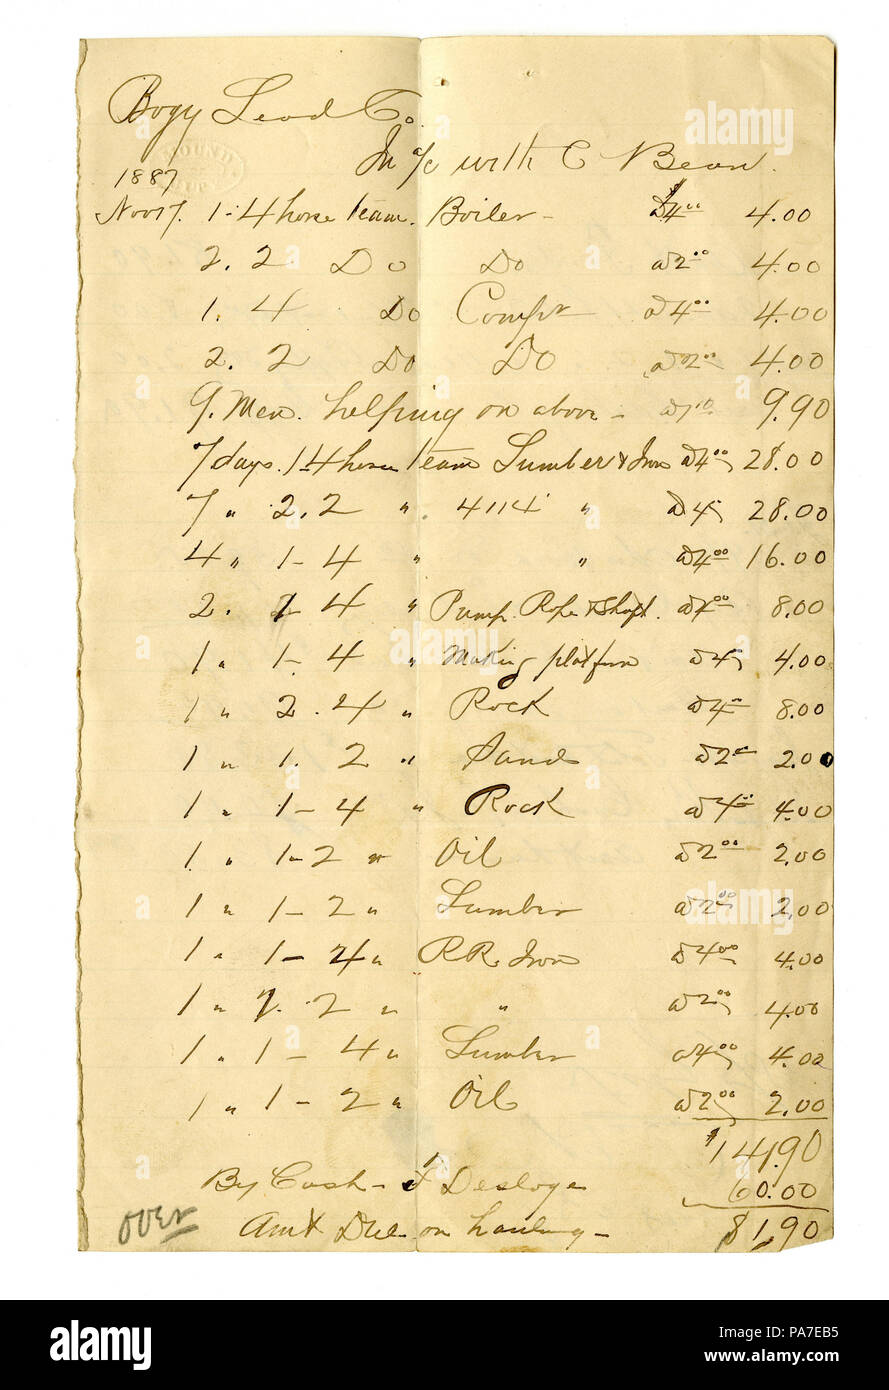 Bogy Lead Co.
In a/c with C Bean.
1887
Nov 17. 1-4 horse team. Boiler - @4.00 4.00
2. 2 Do Do @2.00 4.00
1. 4 Do Compr @4.00 4.00
2. 2 Do Do @2.00 4.00
9. Men. helping on above - @1.10 9.90
7 days. 1-4 horse team Lumber & Iron @4.00 28.00
7 " 2.2 " 4114' " @4 28.00
4 " 1-4 " " @4.00 16.00
2. 1 4 " Pump. Rope & Shaft. @4.00 8.00
1 " 1-4 " Making platform @4 4.00
1 " 2.4 " Rock @4 8.00
1 " 1. 2 " Sand @2 2.00
1 " 1-4 " Rock @4 4.00
1 " 1-2 " Oil @2.00 2.00
1 " 1-2 " Lumber @2.00 2.00
1 " 1-4 " R.R. Iron @4.00 4.00
1 " 2. 2 " " @2.00 4.00
1 " 1-4 " Lumber @4.00 4.00
1 " 1-2 " Oil @2.00 2.00
$141.90
By Cash - F Desloge 60.00
over Amt Due on hauling - 81.90
alamy
PA7EB5
www.alamy.com